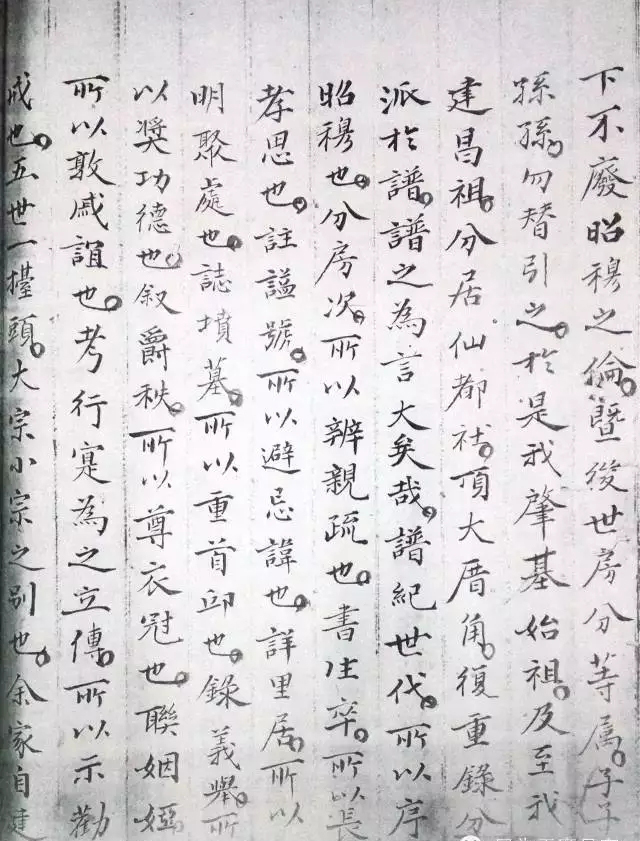 下不廢昭穆之倫。暨後世房分等属。子子
孫孫。勿替引之。於是我肇基始祖。及至我
建昌祖。分居仙都社。頂大厝角。復重錄分
派於譜。譜之為言大矣哉。譜紀世代。所以序
昭穆也。分房次。所以辨親疏也。書生卒。所以長
孝思也。註謚號。所以避忌諱也。詳里居。所以
明聚處也。誌墳墓。所以重首邱也。錄義舉。所
以奨功德也。叙爵秩。所以尊衣冠也。聯姻婭
所以敦戚誼也。考行寔為之立傳。所以示勸
戒也。五世一擡頭。大宗小宗之别也。余家自建